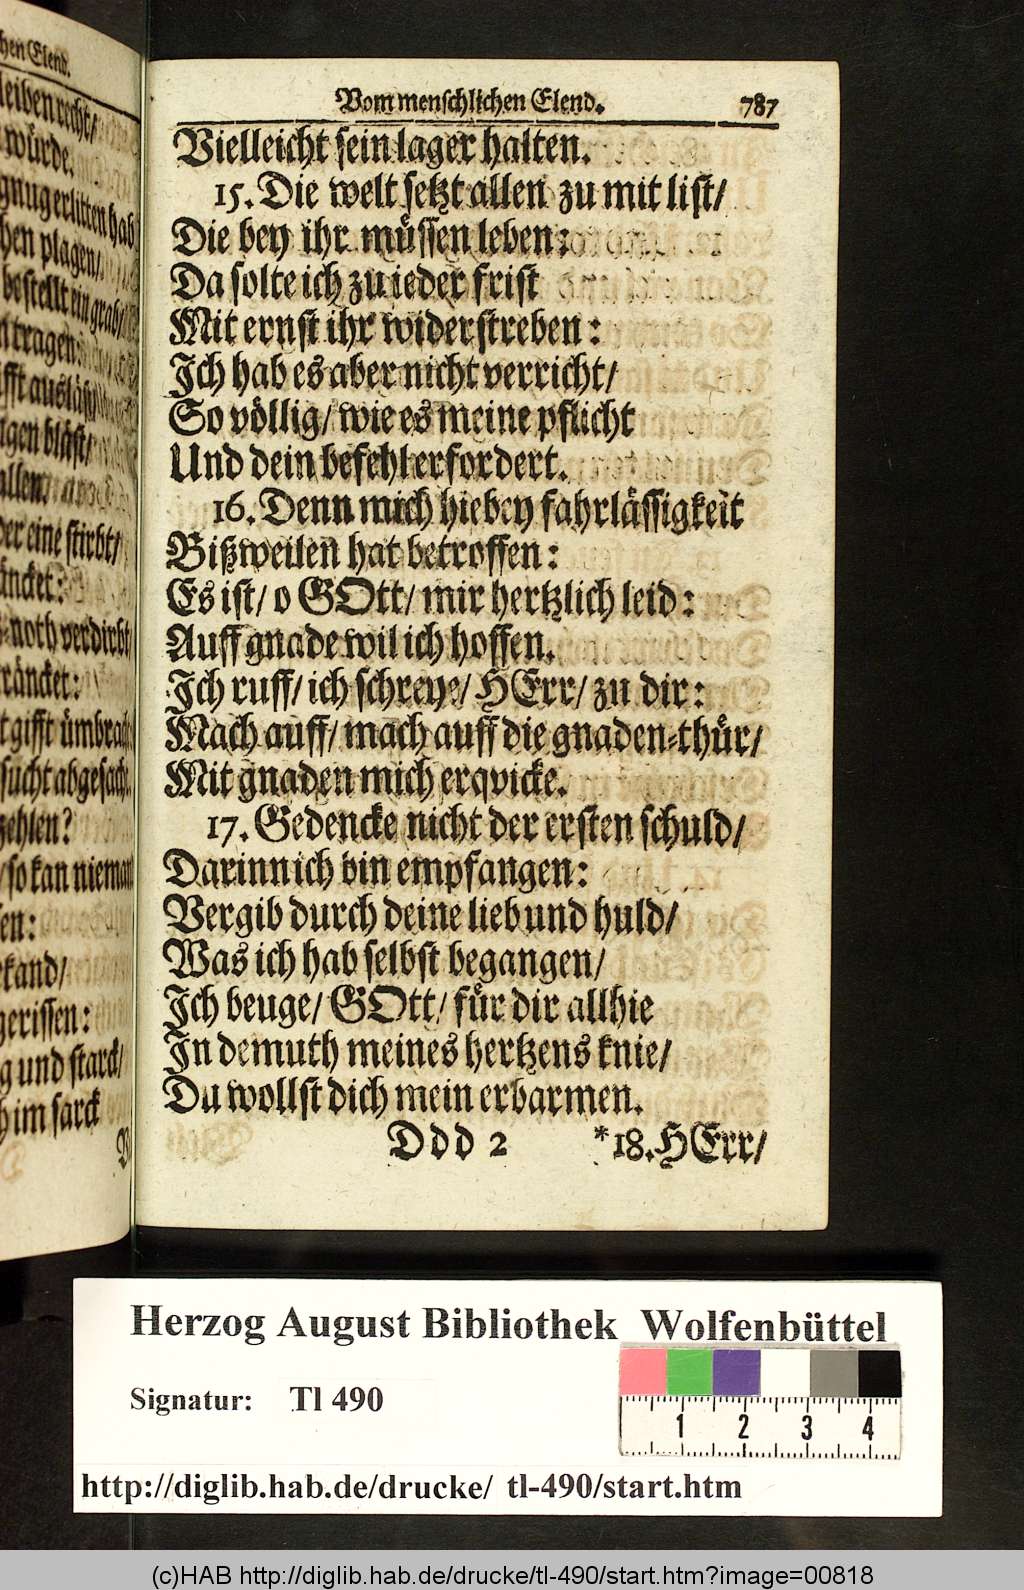 hen Elend.
leiben recht/
würde.
gnug erlitten hab
hen plagen/
bestellt ein grab/
n tragen
fft ausläst
gen bläst/
allen.
der eine stirbt/
äncket:
noth verdirbt/
räncket:
t gifft ümbracht
sucht abgesacht
zehlen?
/ so kan nieman
en:
kand/
gerissen:
g und starck/
h im sarck
Vom menschlichen Elend. 787
Vielleicht sein lager halten.
15. Die welt setzt allen zu mit list/
Die bey ihr müssen leben:
Da solte ich zu ieder frist
Mit ernst ihr widerstreben:
Ich hab es aber nicht verricht/
So völlig/ wie es meine pflicht
Und dein befehl erfordert.
16. Denn mich hiebey fahrlässigkeit
Bißweilen hat betroffen:
Es ist/ o GOtt/ mir hertzlich leid:
Auff gnade wil ich hoffen.
Ich ruff/ ich schreye/ HErr/ zu dir:
Mach auff/ mach auff die gnaden-thür/
Mit gnaden mich erqvicke.
17. Gedencke nicht der ersten schuld/
Darinn ich bin empfangen:
Vergib durch deine lieb und huld/
Was ich hab selbst begangen/
Ich beuge/ GOtt/ für dir allhie
In demuth meines hertzens knie/
Du wollst dich mein erbarmen.
Ddd 2 *18. HErr/
Herzog August Bibliothek Wolfenbüttel
Signatur: Tl 490
1 2 3 4
http://diglib.hab.de/drucke/ tl-490/start.htm
(c)HAB http://diglib.hab.de/drucke/tl-490/start.htm?image=00818